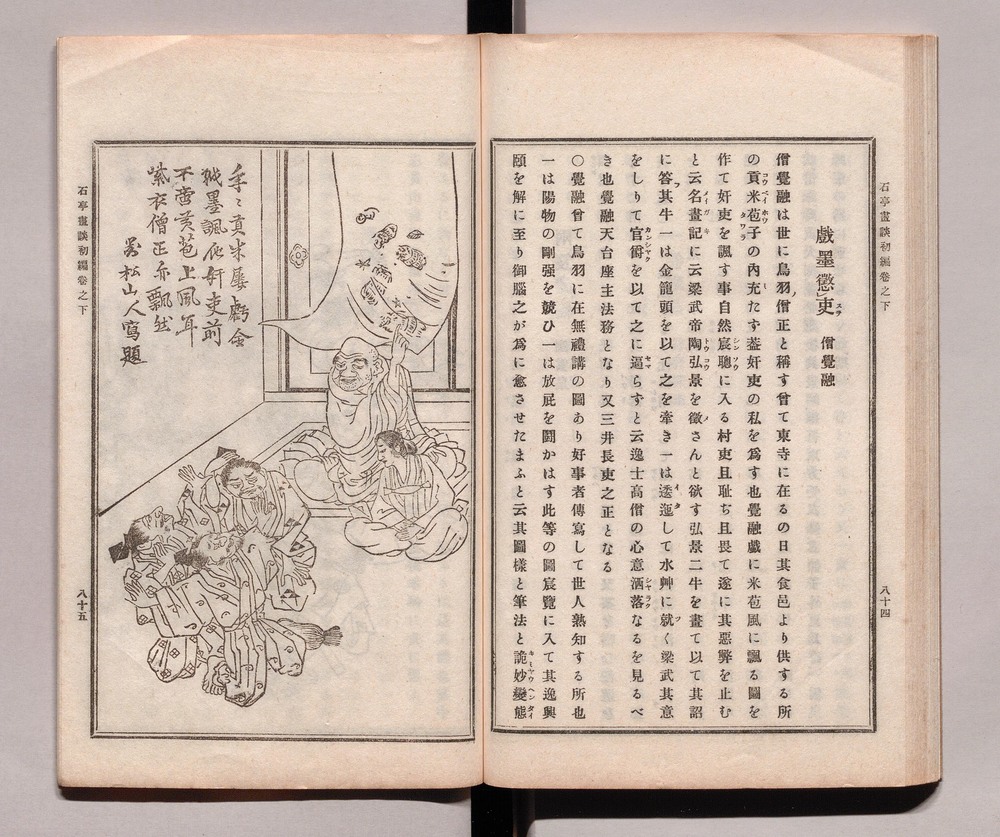 石亭畫談初編卷之下
八十四
戲墨懲吏 僧覺融
僧覺融は世に鳥羽僧正と稱す曾て東寺に在るの日其食邑より供する所
の貢米苞子の內充たす葢奸吏の私を爲す也覺融戲に米苞風に飄る圖を
作て奸吏を諷す事自然宸聰に入る村吏且耻ぢ且畏て遂に其惡弊を止む
と云名畫記に云梁武帝陶弘景を徵さんと欲す弘景二牛を畫て以て其詔
に答其牛一は金籠頭を以て之を牽き一は逶迤して水艸に就く梁武其意
をしりて官爵を以て之に逼らすと云逸士高僧の心意洒落なるを見るべ
き也覺融天台座主法務となり又三井長吏之正となる
○覺融曾て鳥羽に在無禮講の圖あり好事者傳寫して世人熟知する所也
一は陽物の剛强を競ひ一は放屁を鬪かはす此等の圖宸覽に入て其逸興
頤を解に至り御腦之が爲に愈させたまふと云其圖樣と筆法と詭妙變態
年〻貢米屢虧金
戲墨諷 奸吏前
不啻黃苞上風
紫衣僧正亦飄然
松山人寫題
石亭畫談初編卷之下
八十五